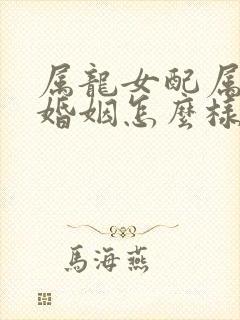 属龍女配属
婚姻怎麼樣
馬海燕